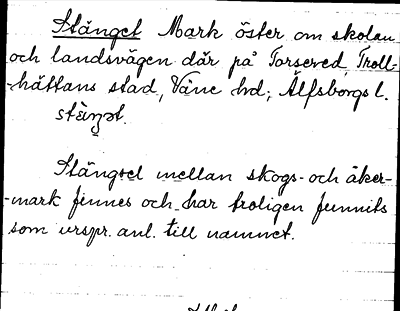 Stänget Mark öster om skolan
och landsvägen där på Torsered, Troll-
-hättans stad, Väne hd; Älfsborgs l.
Stängsel mellan skogs- och åker-
-mark finnes och har troligen funnits
som urspr. anl. till namnet.